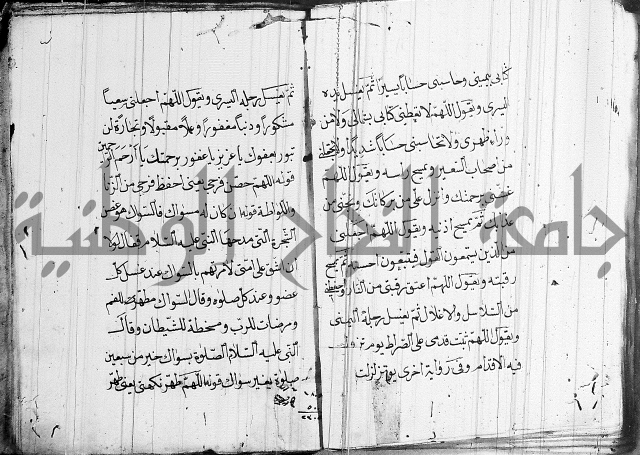 كتابى بيمينى وحاسبنى حسابا يسيرا ثم يغسل يده
اليسرى ويقول اللهم لا تعطنى كتابى بشمالى ولا من
وراء ظهرى ولا تحاسبنى حسابا شديدا ولا تجعلنى
من اصحاب السعير ويمسح راسه ويقول اللهم
غشنى برحمتك وانزل على من بركاتك ونجنى من
عذابك ثم يمسح اذنيه ويقول اللهم اجعلنى
من الذين يستمعون القول فيتبعون احسنه ثم يمسح
رقبته ويقول اللهم اعتق رقبتى من النار واحفظنى
من السلاسل والاغلال ثم يغسل رجله اليمنى
ويقول اللهم ثبت قدمى على الصراط يوم
فيه الاقدام وفى رواية اخرى يوم تزلزلت
ثم يغسل رجله اليسرى ويقول اللهم اجعلنى سعيا
مشكورا وذنبا مغفورا وعملا مقبولا وتجارة لن
تبور بعفوك يا عزيز يا غفور برحمتك يا ارحم الراحمين
قوله اللهم حصن فرجى يعنى احفظ فرجى من الزنا
واللواطة قوله ان كان له مسواك فالسواك هو غصن
الشجرة التى مدحها النبى عليه السلام فقال لولا
ان اشق على امتى لامرتهم بالسواك عند غسل كل
عضو وعند كل صلوة وقال السواك مطهرة للفم
ومرضات للرب ومسخطة للشيطان وقال
النبى عليه السلام الصلوة بسواك خير من سبعين
صلوة بغير سواك قوله اللهم طهر نكهتى يعنى طهر
جامعة النجاح الوطنية